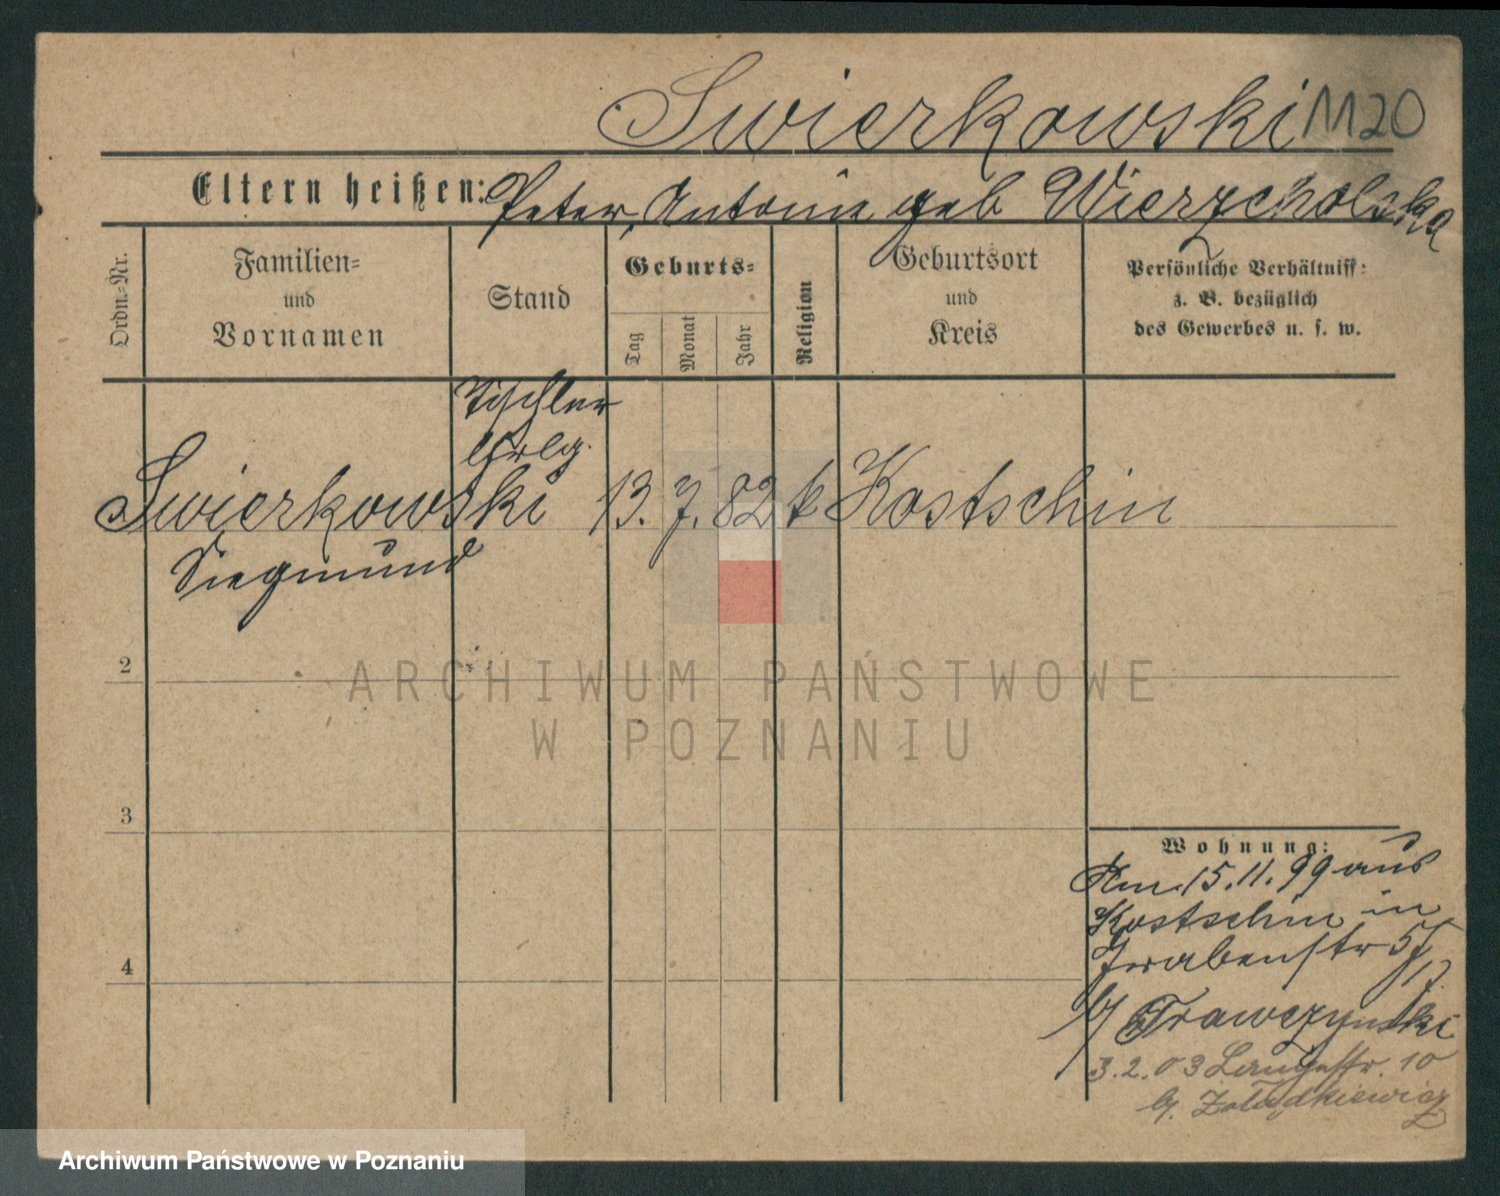 Swierkowski 1120
Eltern heißen: Peter, Antonie geb Wierzcholska
Ordn.-Nr.
Familien-
und
Vornamen
Stand
Geburts-
Tag
Monat
Jahr
Religion
Geburtsort
und
Kreis
Persönliche Verhältniss:
z. B. bezüglich
des Gewerbes u. s. w.
Tischler
Swierkowski 13. 7. 82 k Kostschin
Siegmund
2
3
4
Wohnung:
Am 15.11.99 aus
Kostschin in
Grabenstr
b/ Trawczynski
3.2.03 Langestr. 10
b/. Zoladkiewicz
ARCHIWUM PAŃSTWOWE
W POZNANIU
Archiwum Państwowe w Poznaniu